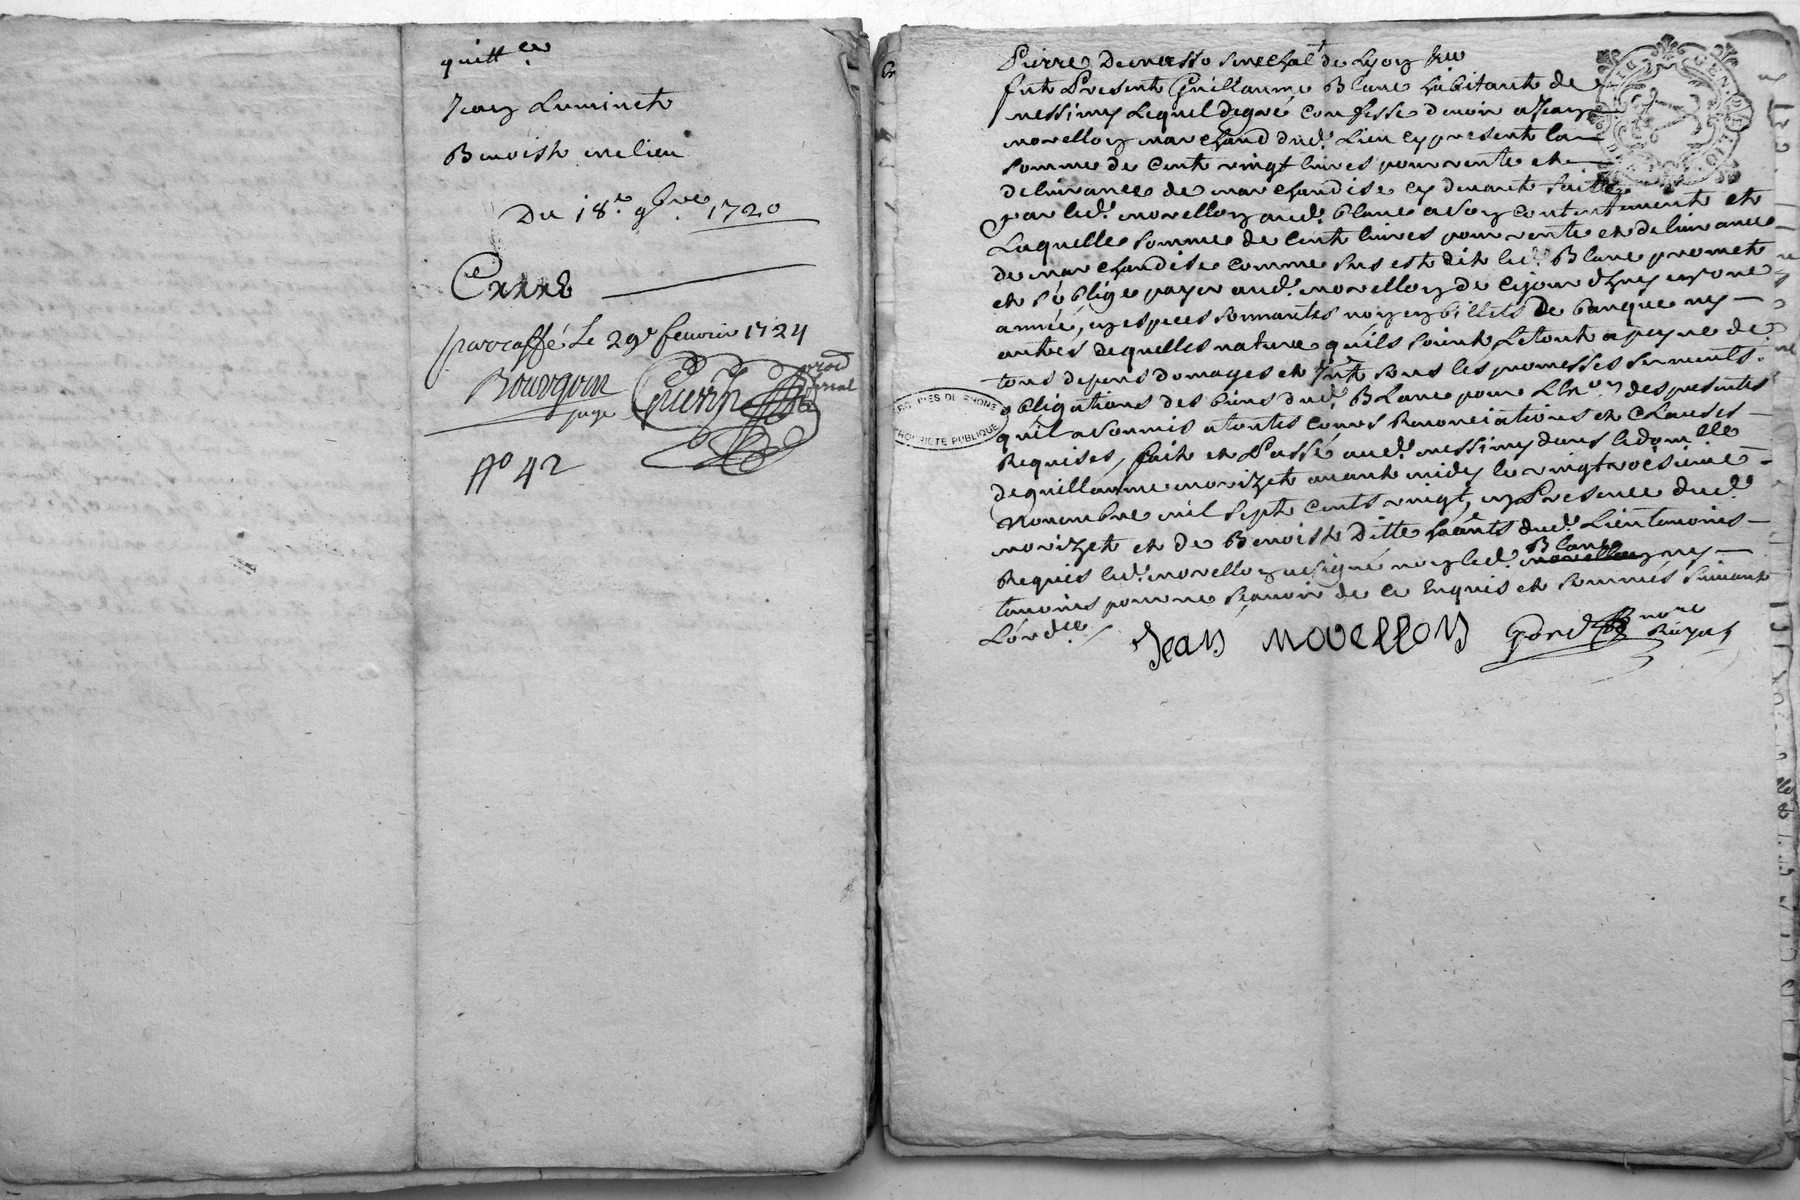 quitt.ce
Jean Luminet
Benoist melieu
Du 18.e 9bre. 1720
parraffé Le 29e fevrier 1724
Bourgoin
juge
Guerin
N° 42
ARCHIVES DU RHONE
PROPRIETE PUBLIQUE
GEN DE LYON
Pierre Dumasso senechal de Lyon
fut Present Guillaume Blanc habitant de
messimy Lequel degré confesse devoir a Jean
novelloy marchand dud.t Lieu cy present la
somme de cent vingt livres pour vente et
delivrance de marchandise cy devant faitte
par led.t novelloy aud.t blanc a soy contentement et
Laquelle somme de cent livres pour vente et delivrance
de marchandise comme sus est dit led.t Blanc promet
et s'oblige payer aud.t novelloy de cejourdhuy en une
année, en especes sonnantes non en billets de banque ny
autres dequelles nature quils soint Le tout a peyne de
tous depens domages et Intts sous les promesses serments
obligations des biens dud.t Blanc pour L'exon des presentes
quil a soumis a toutes cours Renonciations et Clauses
Requises, fait et Passé aud.t messimy dans le domlle
de guillaume morizet avant midy le vingtroisieme
Novembre mil sept cents vingt, en Presence dud.t
morizet et de Benoist Ditte hants dud.t Lieu temoins
Requis led.t novelloy a signé non led.t Blanc ny
temoins pour ne sçavoir de ce Enquis et sommés suivant
L'ordce /
Jean novelloy
nore
Royal